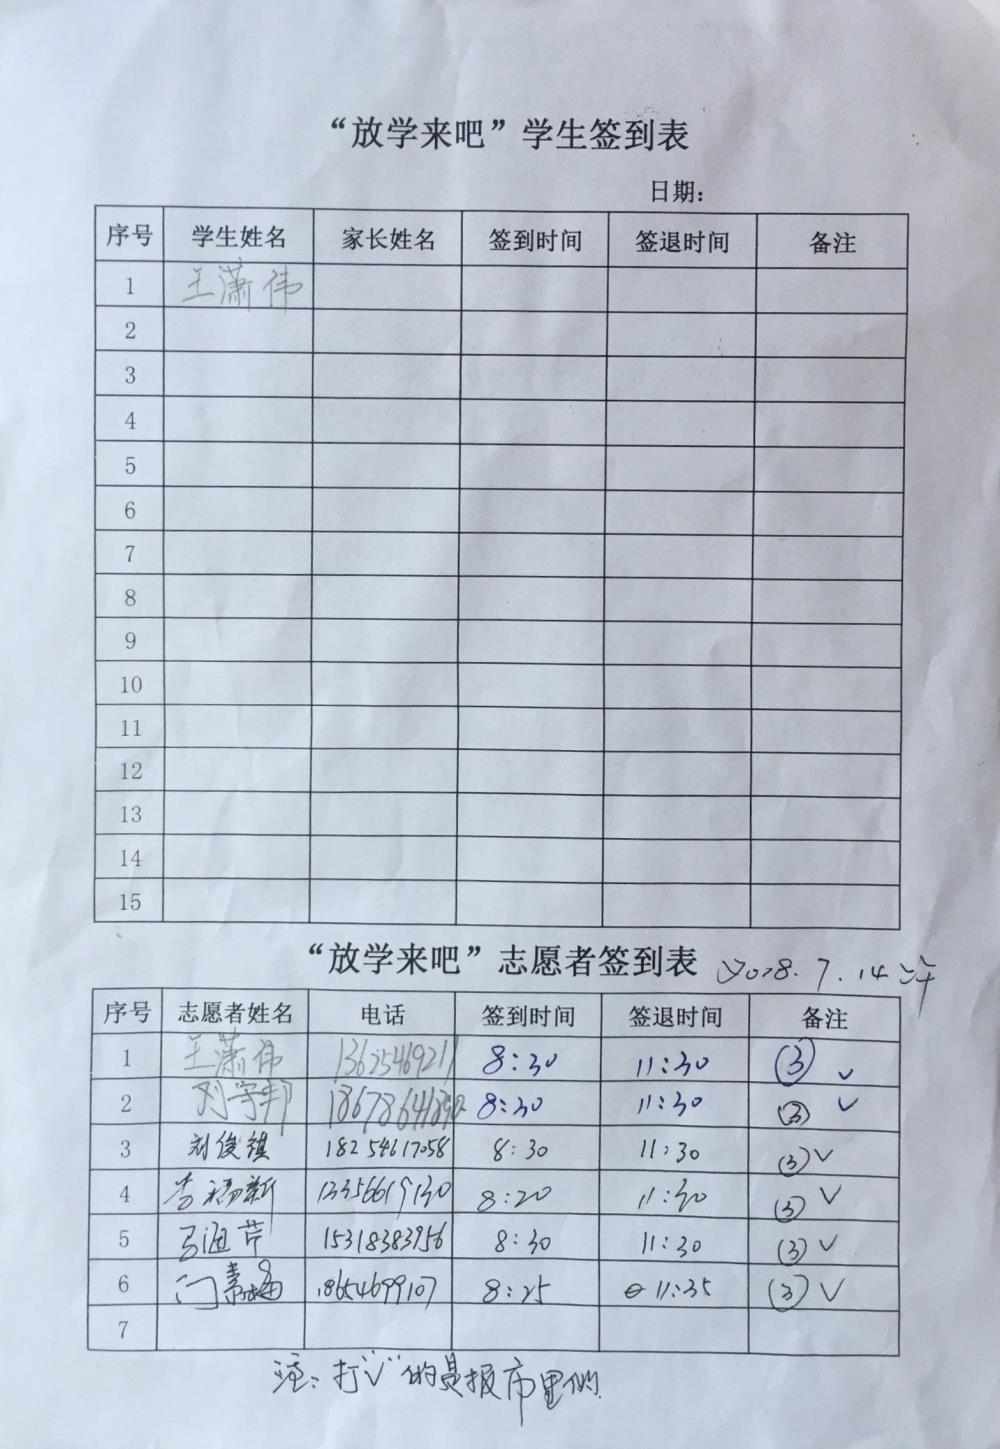 “放学来吧”学生签到表
日期：
序号 学生姓名 家长姓名 签到时间 签退时间 备注
1 王潇伟
2
3
4
5
6
7
8
9
10
11
12
13
14
15
“放学来吧”志愿者签到表 2018.7.14
序号 志愿者姓名 电话 签到时间 签退时间 备注
1 王潇伟 13625469211 8:30 11:30 (3) ✓
2 刘宇邦 8:30 11:30 (3) ✓
3 刘俊镇 18254617058 8:30 11:30 (3) ✓
4 13356619130 8:20 11:30 (3) ✓
5 15318383956 8:30 11:30 (3) ✓
6 门 18654699107 8:25 11:35 (3) ✓
7
注：打“√”的是报市里的